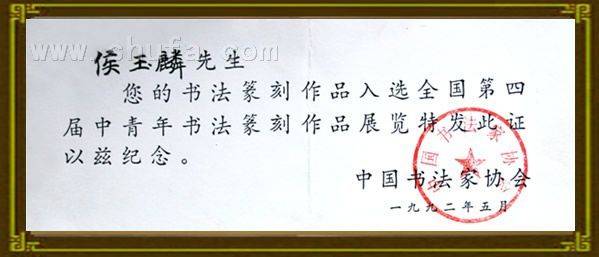 www.shufa.com
侯玉麟先生
您的书法篆刻作品入选全国第四
届中青年书法篆刻作品展览特发此证
以兹纪念。
中国书法家协会
一九九二年五月
中国书法家协会